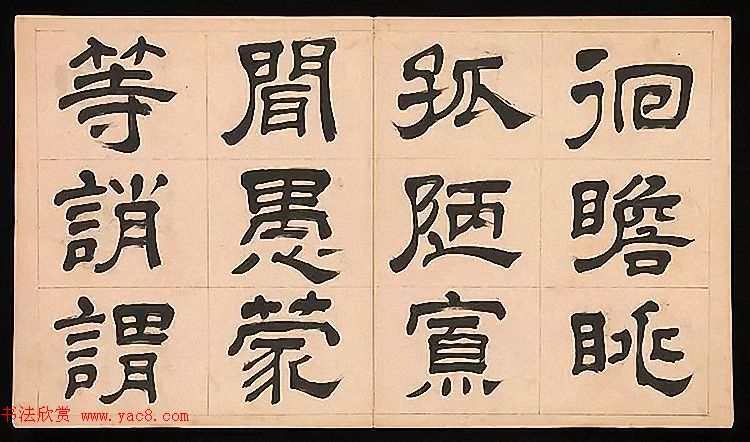 徊瞻眺
孤陋寡
聞愚蒙
等誚謂
书法欣赏 www.yac8.com